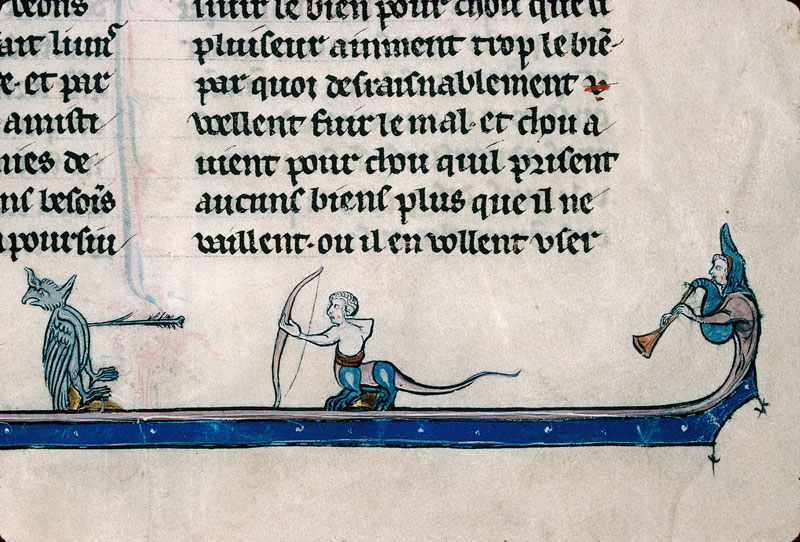 leons
fait lum̃
re. et par
amisti
nies de
ns besoĩs
poursiu
fuir le bien pour chou que li
pluiseur aimment trop le biẽ
par quoi desraisnablement
wellent fuir le mal. et chou a
uient pour chou quil prisent
aucuns biens plus que il ne
vaillent. ou il en vollent vser